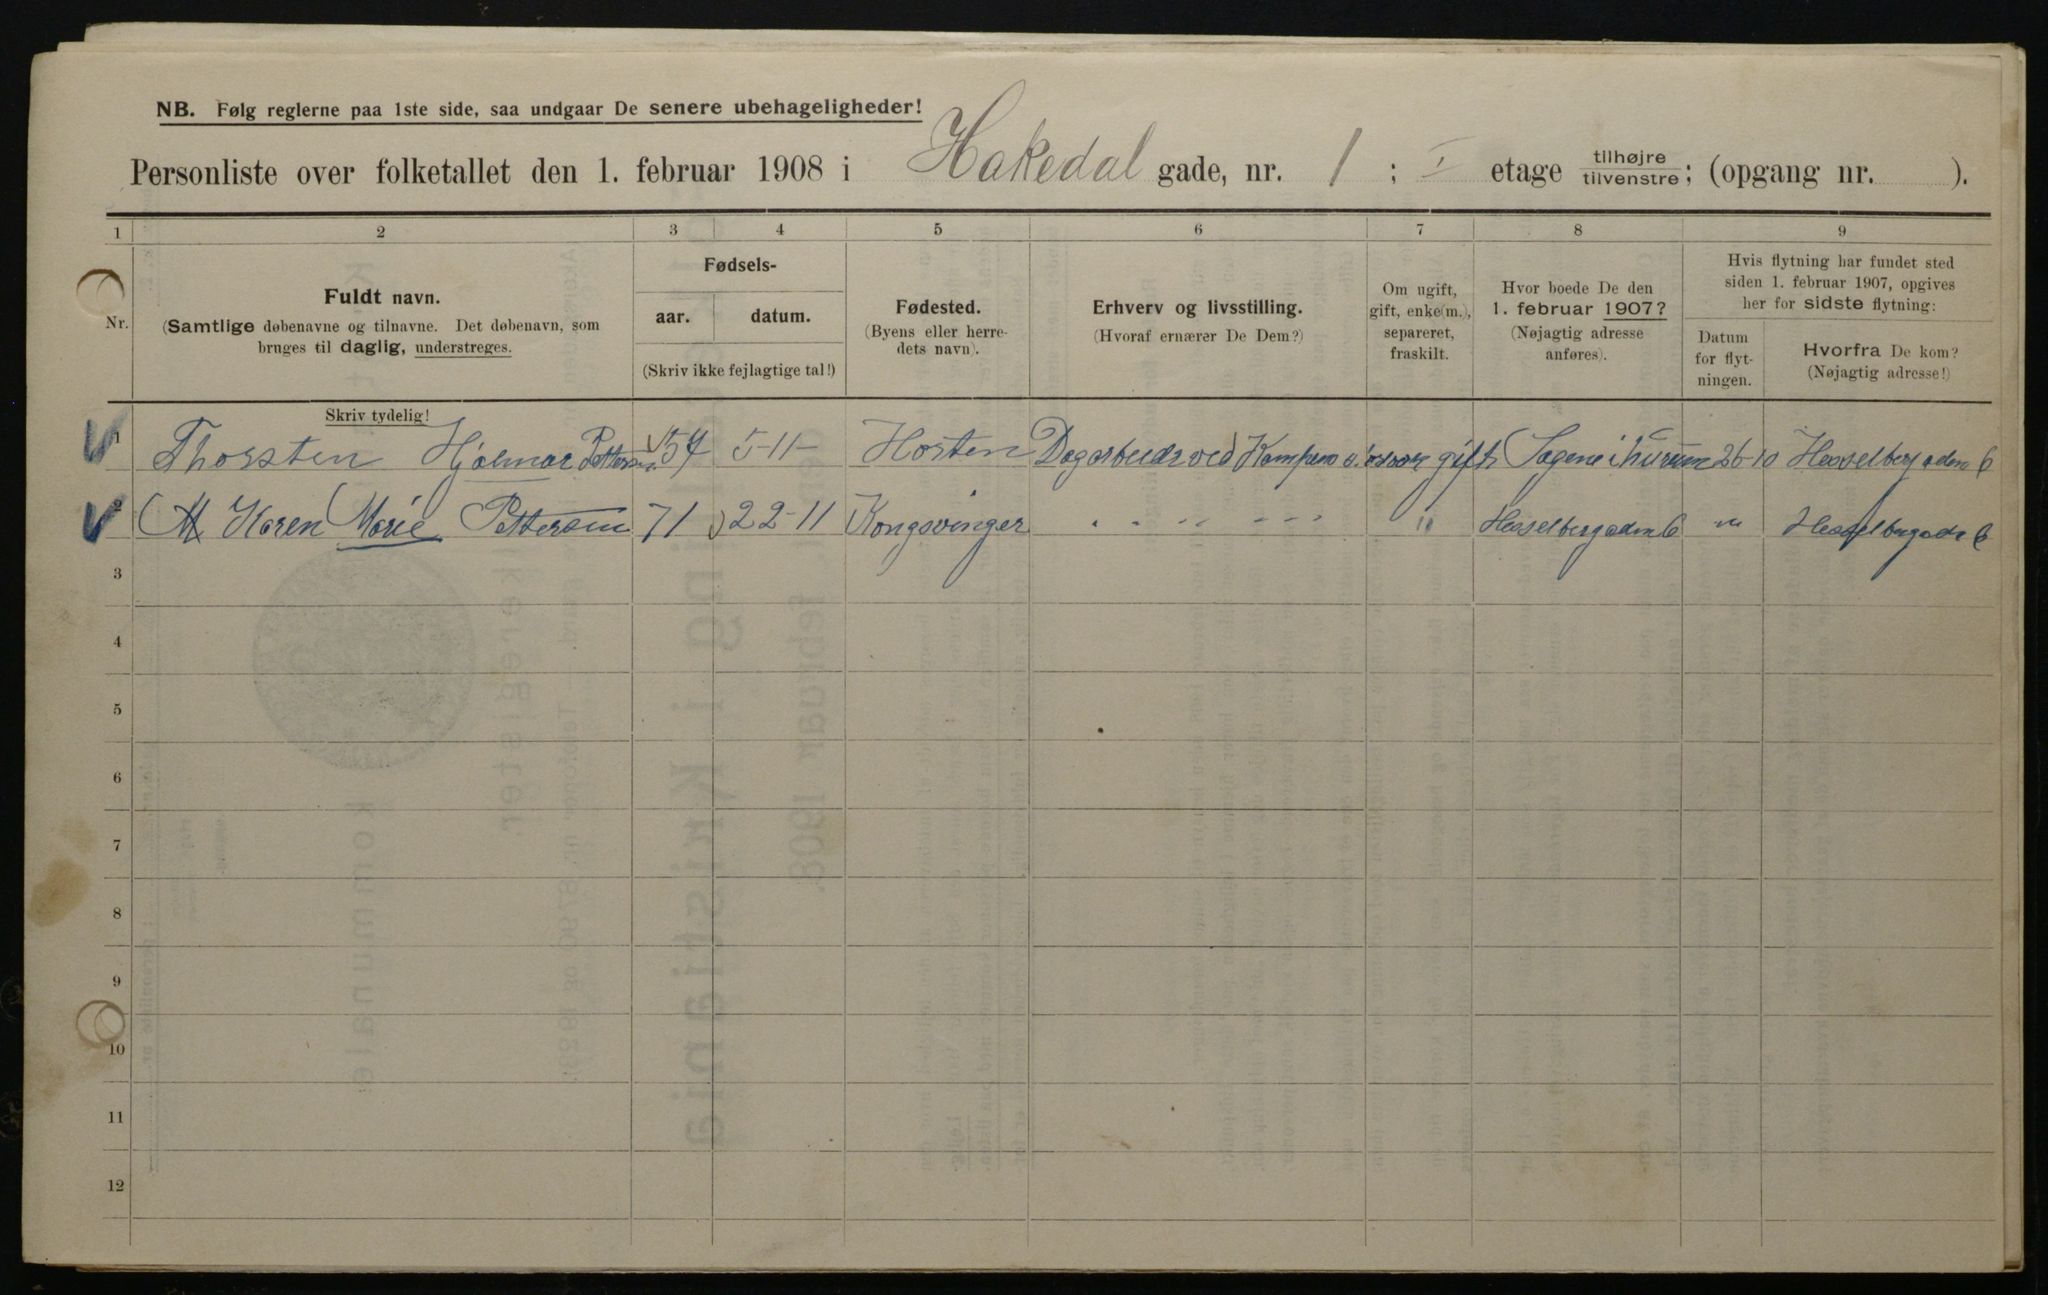 NB. Følg reglerne paa 1ste side, saa undgaar De senere ubehageligheder!
Personliste over folketallet den 1. februar 1908 i Hakedal gade, nr. 1 ; I etage tilhøjre tilvenstre; (opgang nr. ).
1 2 3 4 5 6 7 8 9
Nr.
Fuldt navn.
(Samtlige døbenavne og tilnavne. Det døbenavn, som
bruges til daglig, understreges.
Skriv tydelig!
Fødsels-
aar. datum.
(Skriv ikke fejlagtige tal!)
Fødested.
(Byens eller herre-
dets navn).
Erhverv og livsstilling.
(Hvoraf ernærer De Dem?)
Om ugift,
gift, enke(m.),
separeret,
fraskilt.
Hvor boede De den
1. februar 1907?
(Nøjagtig adresse
anføres).
Hvis flytning har fundet sted
siden 1. februar 1907, opgives
her for sidste flytning:
Datum
for flyt-
ningen.
Hvorfra De kom?
(Nøjagtig adresse!)
1 Thorsten Hjalmar Pettersen 57 5-11- Horten ved Kampens gift Sagene 26-10 Hesselberg aden 6
2 Karen Marie Pettersen 71 22-11 Kongsvinger " " " " Hesselberg aden 6 " Hesselbergade 6
3
4
5
6
7
8
9
10
11
12